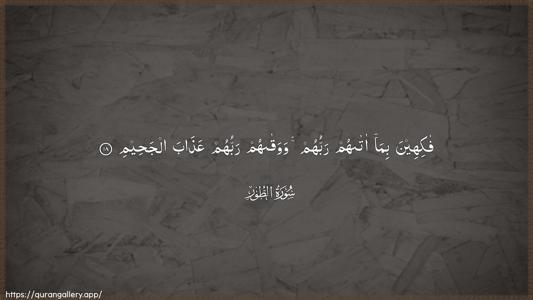 فٰكِهِيْنَ بِمَآ اٰتٰىهُمْ رَبُّهُمْ ۚ وَوَقٰىهُمْ رَبُّهُمْ عَذَابَ الْجَحِيْمِ ۝١٨
سُوْرَةُ الطُّوْرِ
https://qurangallery.app/